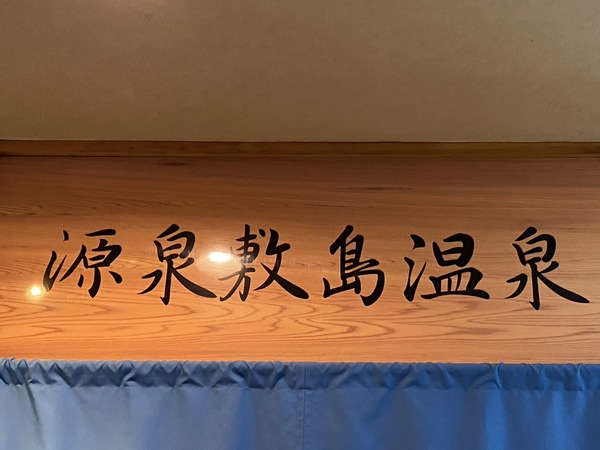 源泉敷島温泉